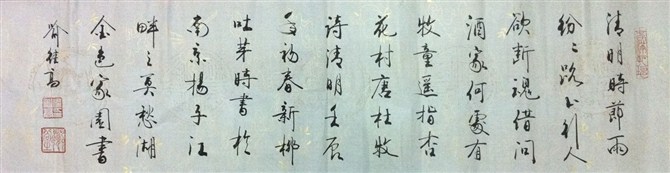 清明時節雨
紛々路上行人
欲斷魂借問
酒家何處有
牧童遙指杏
花村唐杜牧
詩清明壬辰
年初春新柳
吐芽時書於
南京揚子江
畔之莫愁湖
金色家園書
喻繼高